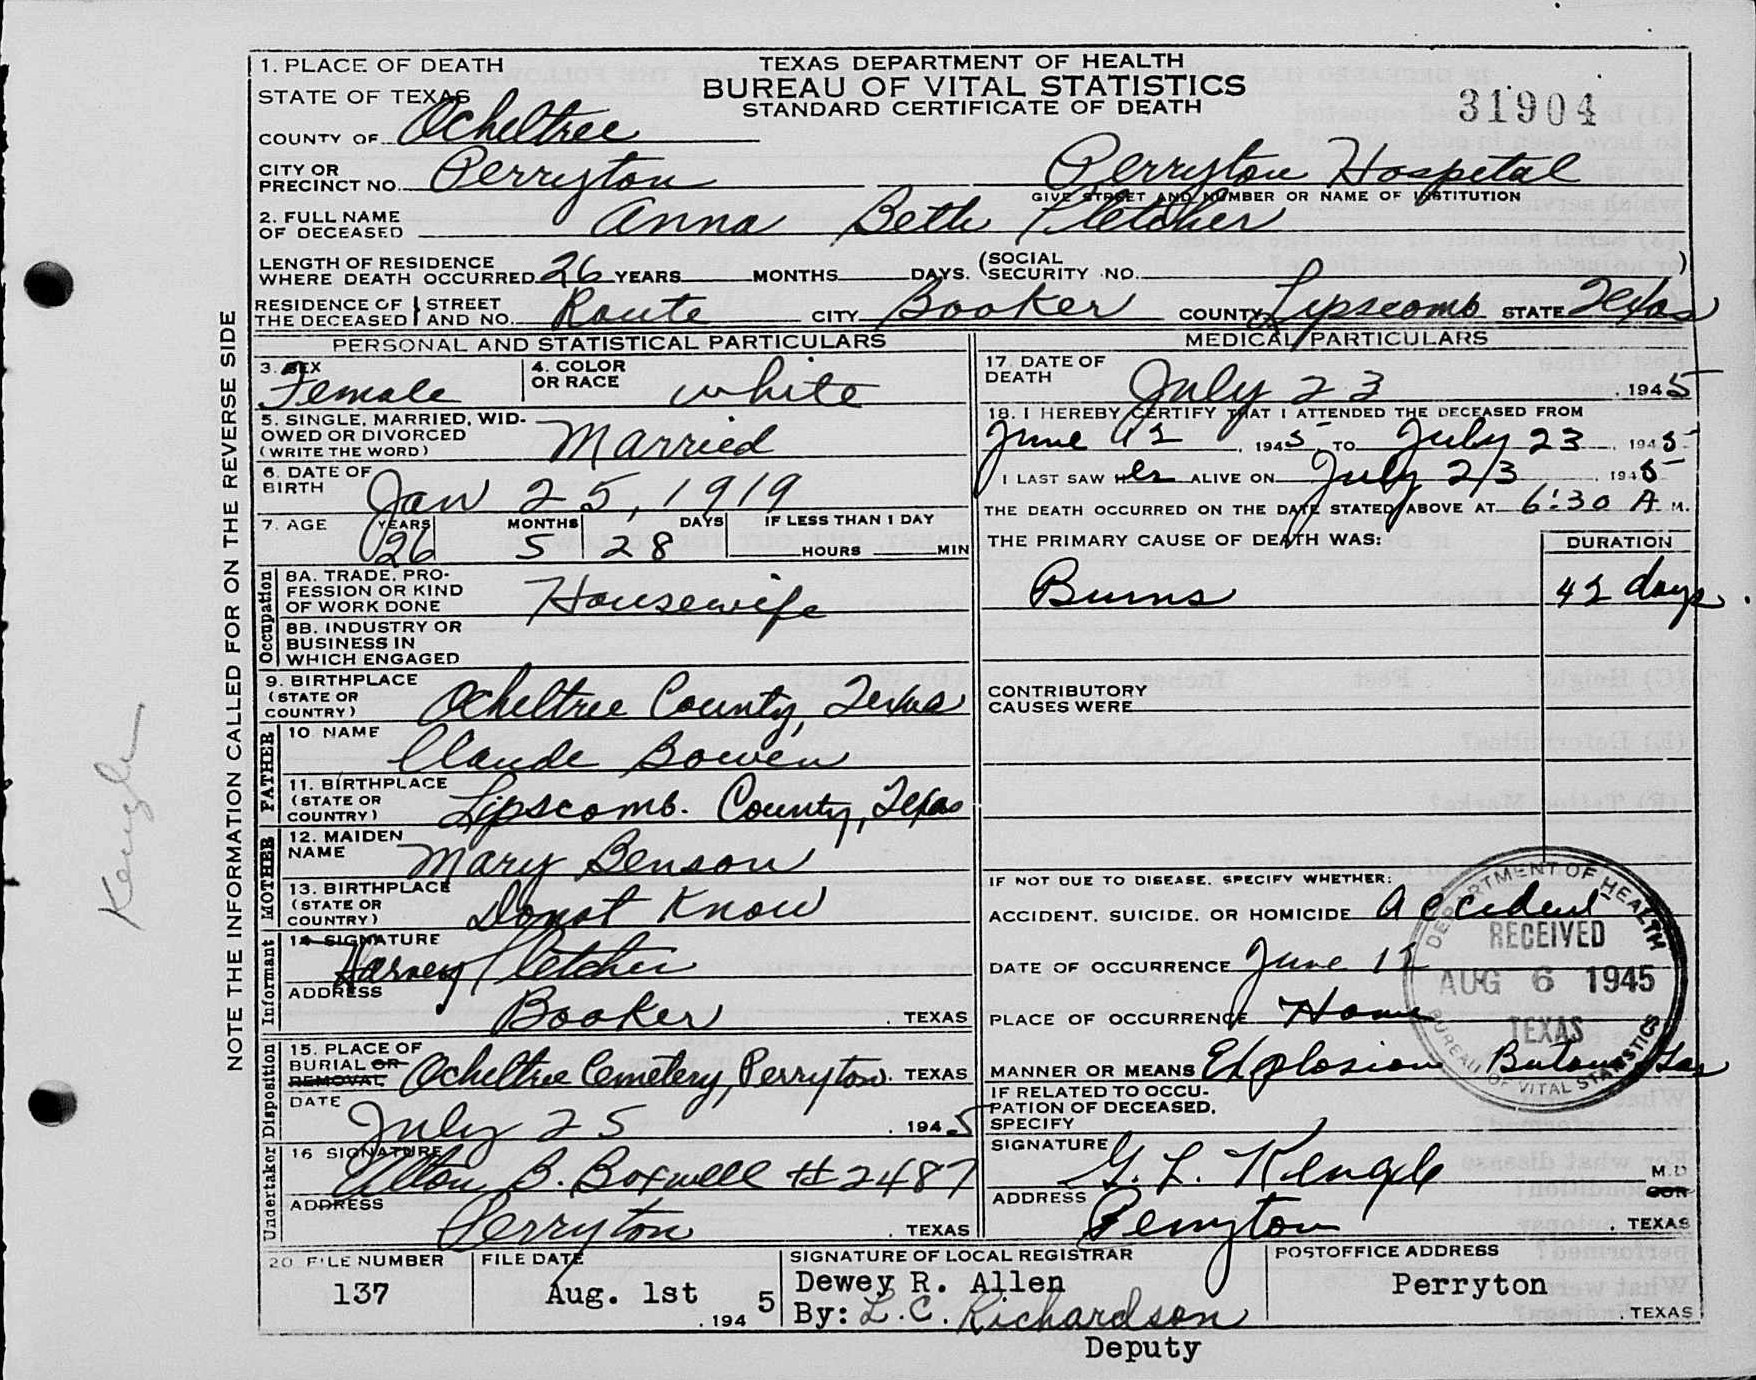 1. PLACE OF DEATH
TEXAS DEPARTMENT OF HEALTH
BUREAU OF VITAL STATISTICS
STANDARD CERTIFICATE OF DEATH
31904
STATE OF TEXAS
COUNTY OF Ocheltree
CITY OR PRECINCT NO. Perryton Perryton Hospetal
GIVE STREET AND NUMBER OR NAME OF INSTITUTION
2. FULL NAME OF DECEASED Anna Beth Fletcher
LENGTH OF RESIDENCE WHERE DEATH OCCURRED 26 YEARS MONTHS DAYS. (SOCIAL SECURITY NO. )
RESIDENCE OF THE DECEASED } STREET AND NO. Route CITY Booker COUNTY Lipscomb STATE Texas
PERSONAL AND STATISTICAL PARTICULARS
3. SEX Female
4. COLOR OR RACE white
5. SINGLE, MARRIED, WIDOWED OR DIVORCED (WRITE THE WORD) Married
6. DATE OF BIRTH Jan 25, 1919
7. AGE YEARS 26 MONTHS 5 DAYS 28 IF LESS THAN 1 DAY HOURS MIN
Occupation
8A. TRADE, PROFESSION OR KIND OF WORK DONE Housewife
8B. INDUSTRY OR BUSINESS IN WHICH ENGAGED
9. BIRTHPLACE (STATE OR COUNTRY) Ocheltree County, Texas
FATHER
10 NAME Claude Bowen
11. BIRTHPLACE (STATE OR COUNTRY) Lipscomb. County, Texas
MOTHER
12. MAIDEN NAME Mary Benson
13. BIRTHPLACE (STATE OR COUNTRY) Donot Know
Informant
14 SIGNATURE Harvey Fletcher
ADDRESS Booker, TEXAS
Disposition
15. PLACE OF BURIAL OR REMOVAL Ocheltree Cemetery, Perryton. TEXAS
DATE July 25, 1945
Undertaker
16 SIGNATURE Alton B. Boxwell #2487
ADDRESS Perryton, TEXAS
MEDICAL PARTICULARS
17. DATE OF DEATH July 23, 1945
18. I HEREBY CERTIFY THAT I ATTENDED THE DECEASED FROM
June 12, 1945 TO July 23, 1945
I LAST SAW Her ALIVE ON July 23, 1945
THE DEATH OCCURRED ON THE DATE STATED ABOVE AT 6:30 A M.
THE PRIMARY CAUSE OF DEATH WAS: DURATION
Burns 42 days.
CONTRIBUTORY CAUSES WERE
IF NOT DUE TO DISEASE, SPECIFY WHETHER:
ACCIDENT, SUICIDE, OR HOMICIDE Accident
DATE OF OCCURRENCE June 12
PLACE OF OCCURRENCE Home
MANNER OR MEANS Explosion Butane Gas
IF RELATED TO OCCUPATION OF DECEASED, SPECIFY
SIGNATURE G. L. Kengle M.D OR
ADDRESS Perryton, TEXAS
DEPARTMENT OF HEALTH
RECEIVED
AUG 6 1945
TEXAS
BUREAU OF VITAL STATISTICS
20 FILE NUMBER 137
FILE DATE Aug. 1st, 1945
SIGNATURE OF LOCAL REGISTRAR
Dewey R. Allen
By: L. C. Richardson
Deputy
POSTOFFICE ADDRESS
Perryton, TEXAS
NOTE THE INFORMATION CALLED FOR ON THE REVERSE SIDE
Kengle